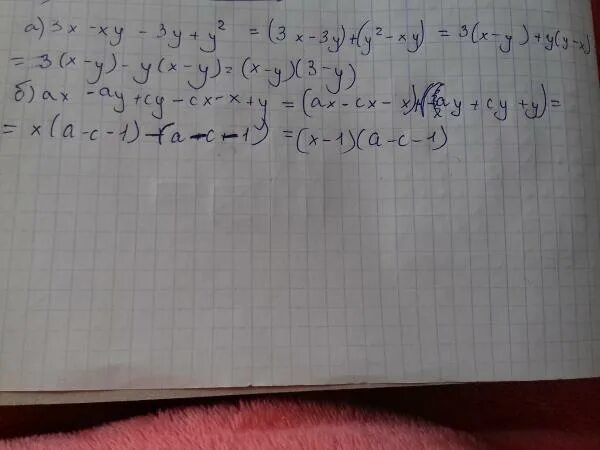 а) 3x - xy - 3y + y² = (3x - 3y) + (y² - xy) = 3(x - y) + y(y - x)
= 3(x - y) - y(x - y) = (x - y)(3 - y)
б) ax - ay + cy - cx - x + y = (ax - cx - x) + (ay + cy + y) =
= x(a - c - 1) - (a - c - 1) = (x - 1)(a - c - 1)